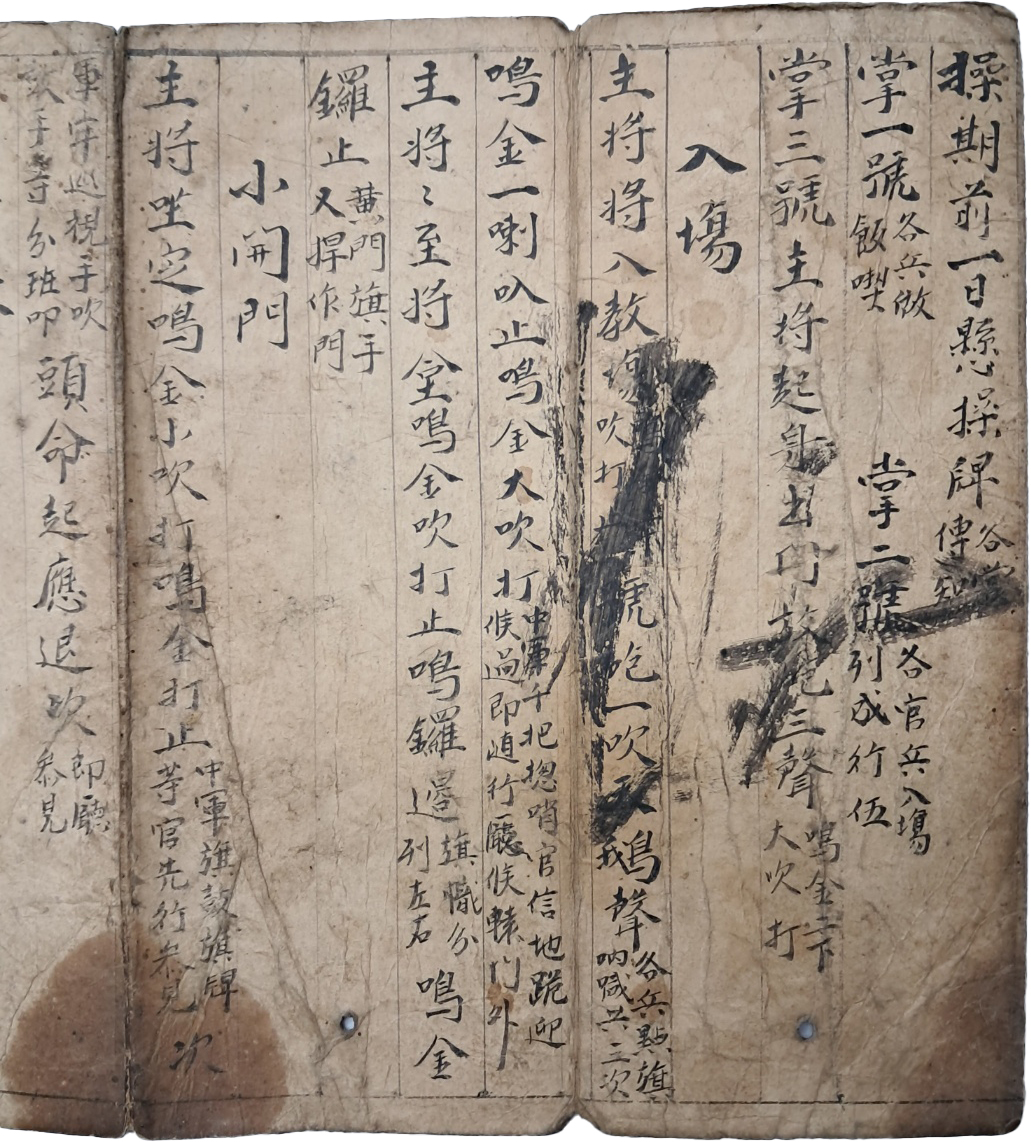 操期前一日懸操牌各營傳知
掌一號各兵做飯喫 掌二號各官兵入塲列成行伍
掌三號主将起身出門放砲三聲鳴金二下大吹打
入塲
主将将入教塲吹打 號砲一吹天鵝聲各兵點旗吶喊共三次
鳴金一喇叭止鳴金大吹打中軍千把揔哨官信地跪迎候過即随行廳候轅門外
主将〻至将堂鳴金吹打止鳴鑼邉旗幟分列左右鳴金
鑼止黄門旗手又捍作門
小開門
主将坐定鳴金小吹打鳴金打止中軍旗鼓旗牌等官先行叅見次
軍牢巡視手吹鼓手等分班叩頭命起應退次即廳叅見